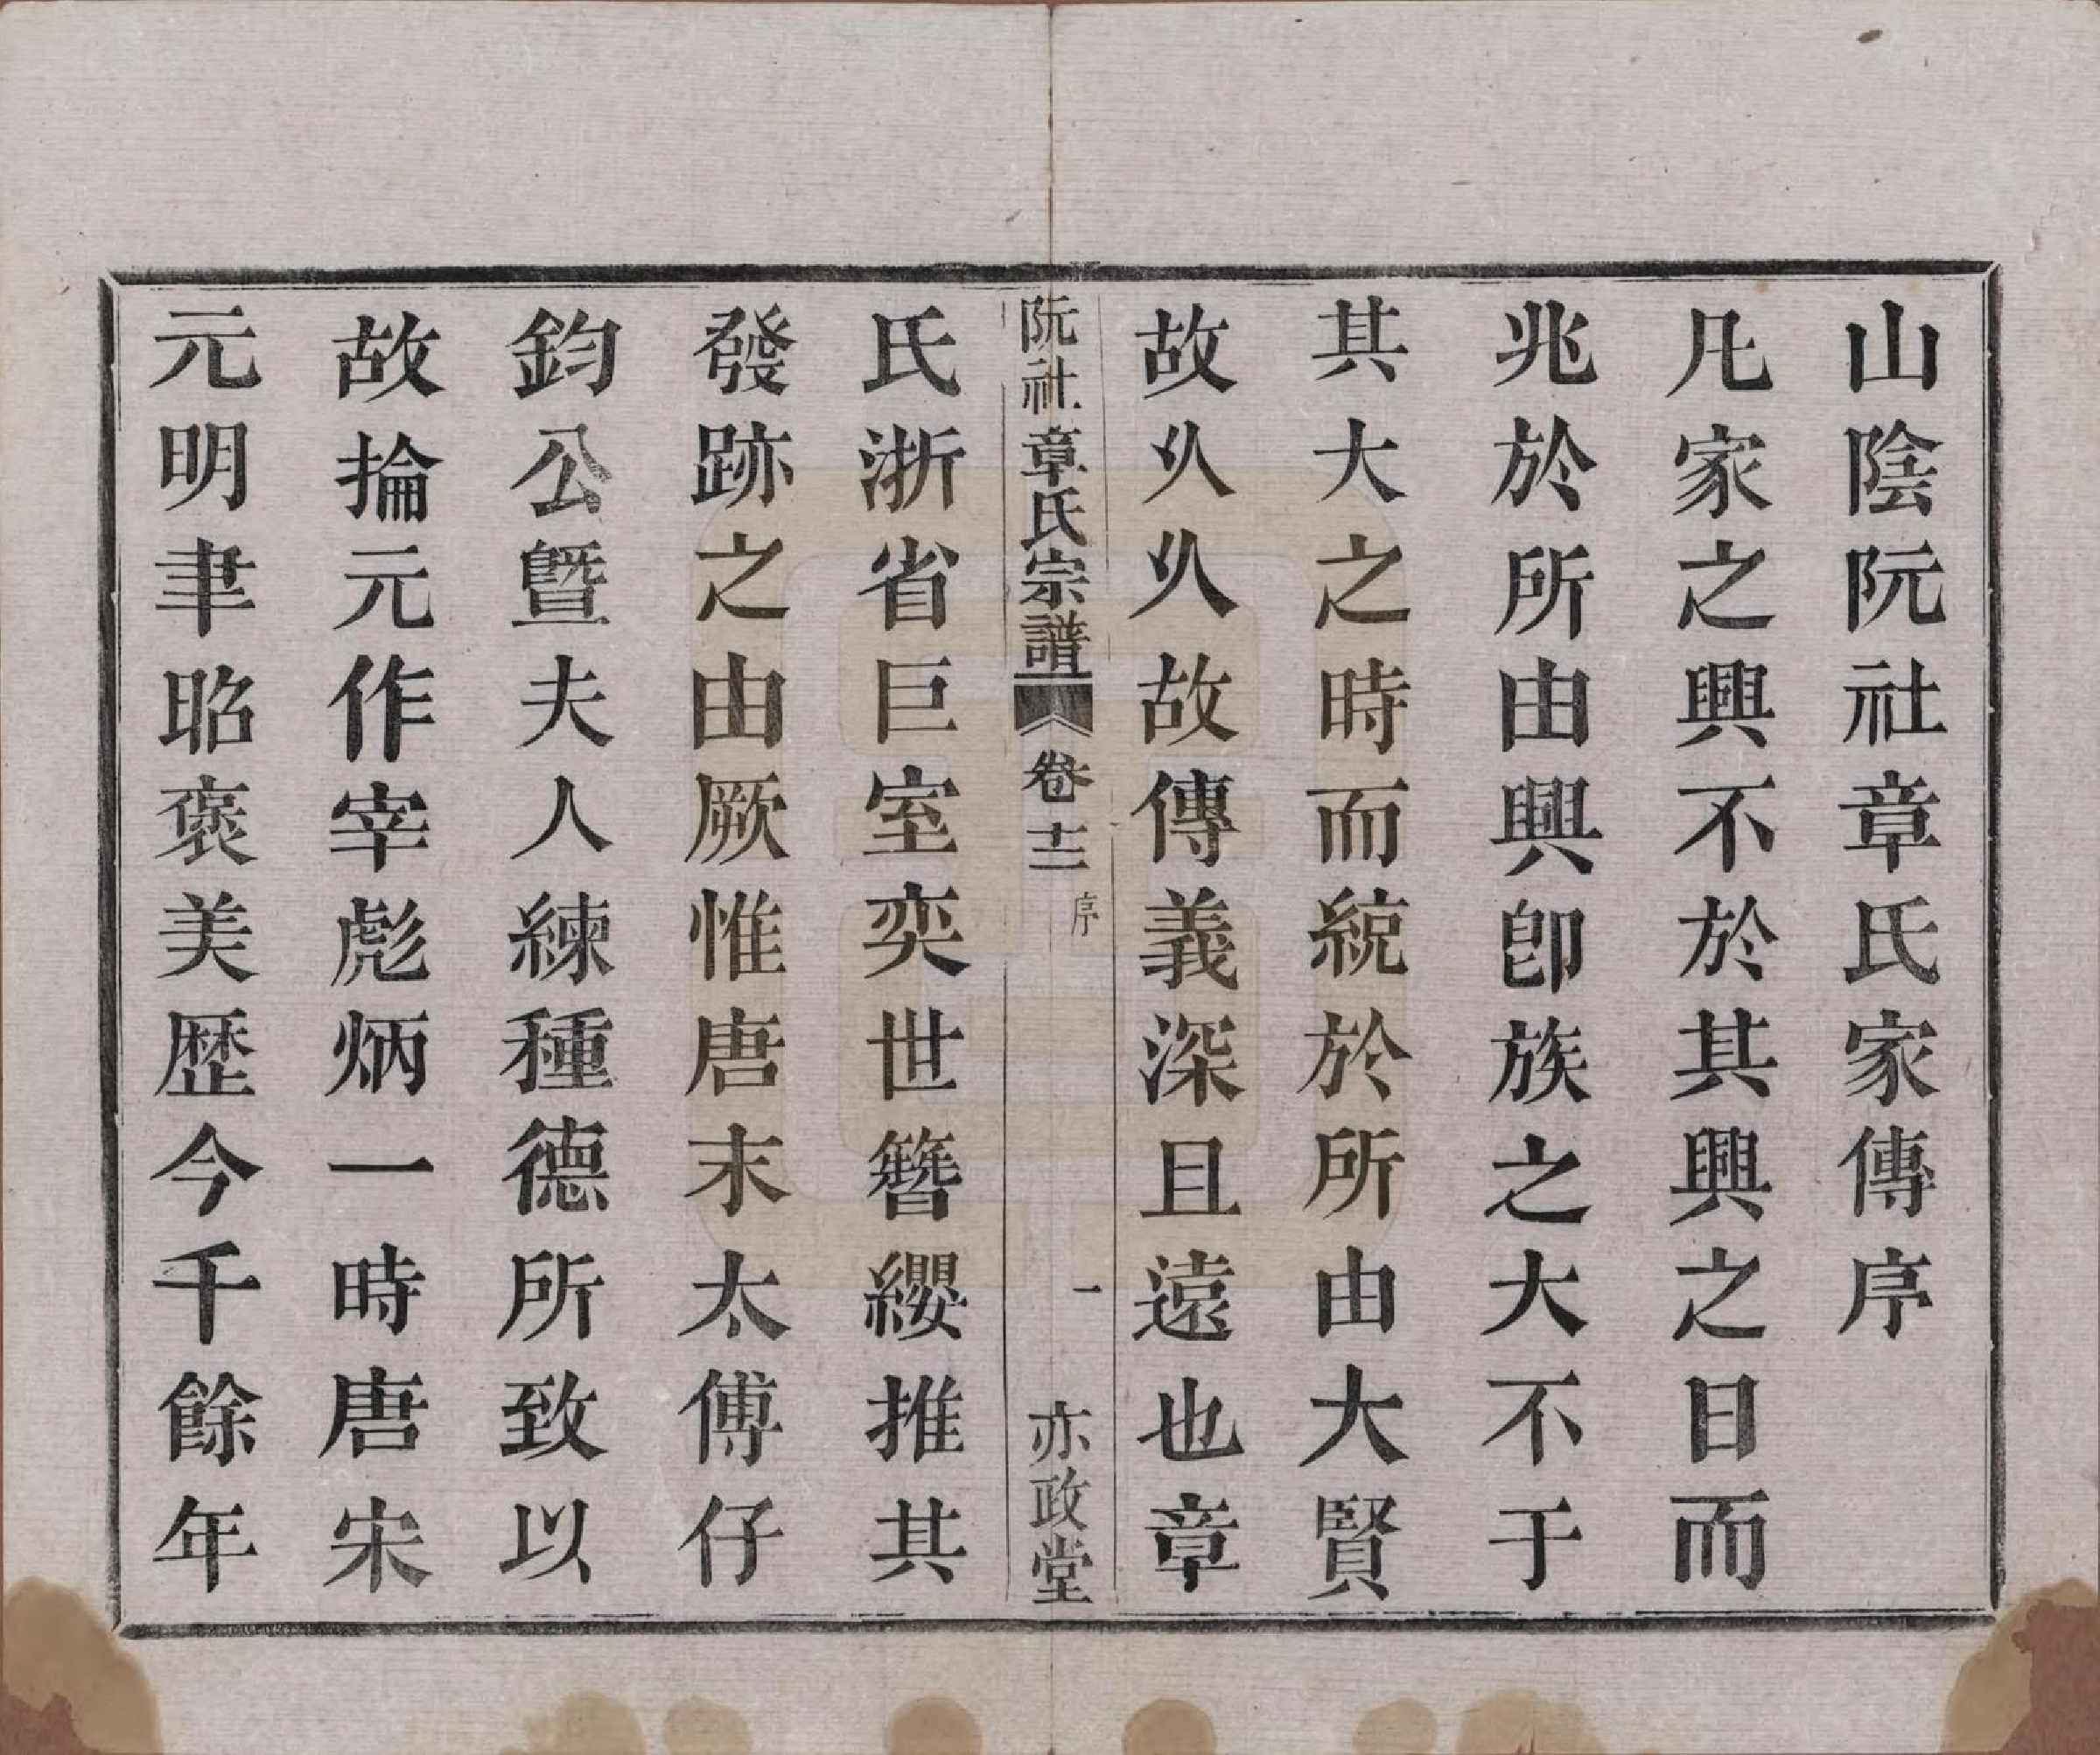 山陰阮社章氏家傳序
凡家之興不於其興之日而
兆於所由興卽族之大不于
其大之時而統於所由大賢
故乆乆故傳義深且遠也章
阮社章氏宗譜 卷十二 序 一 亦政堂
氏浙省巨室奕世簪纓推其
發跡之由厥惟唐末太傅仔
鈞公曁夫人練種德所致以
故掄元作宰彪炳一時唐宋
元明聿昭褒美歷今千餘年